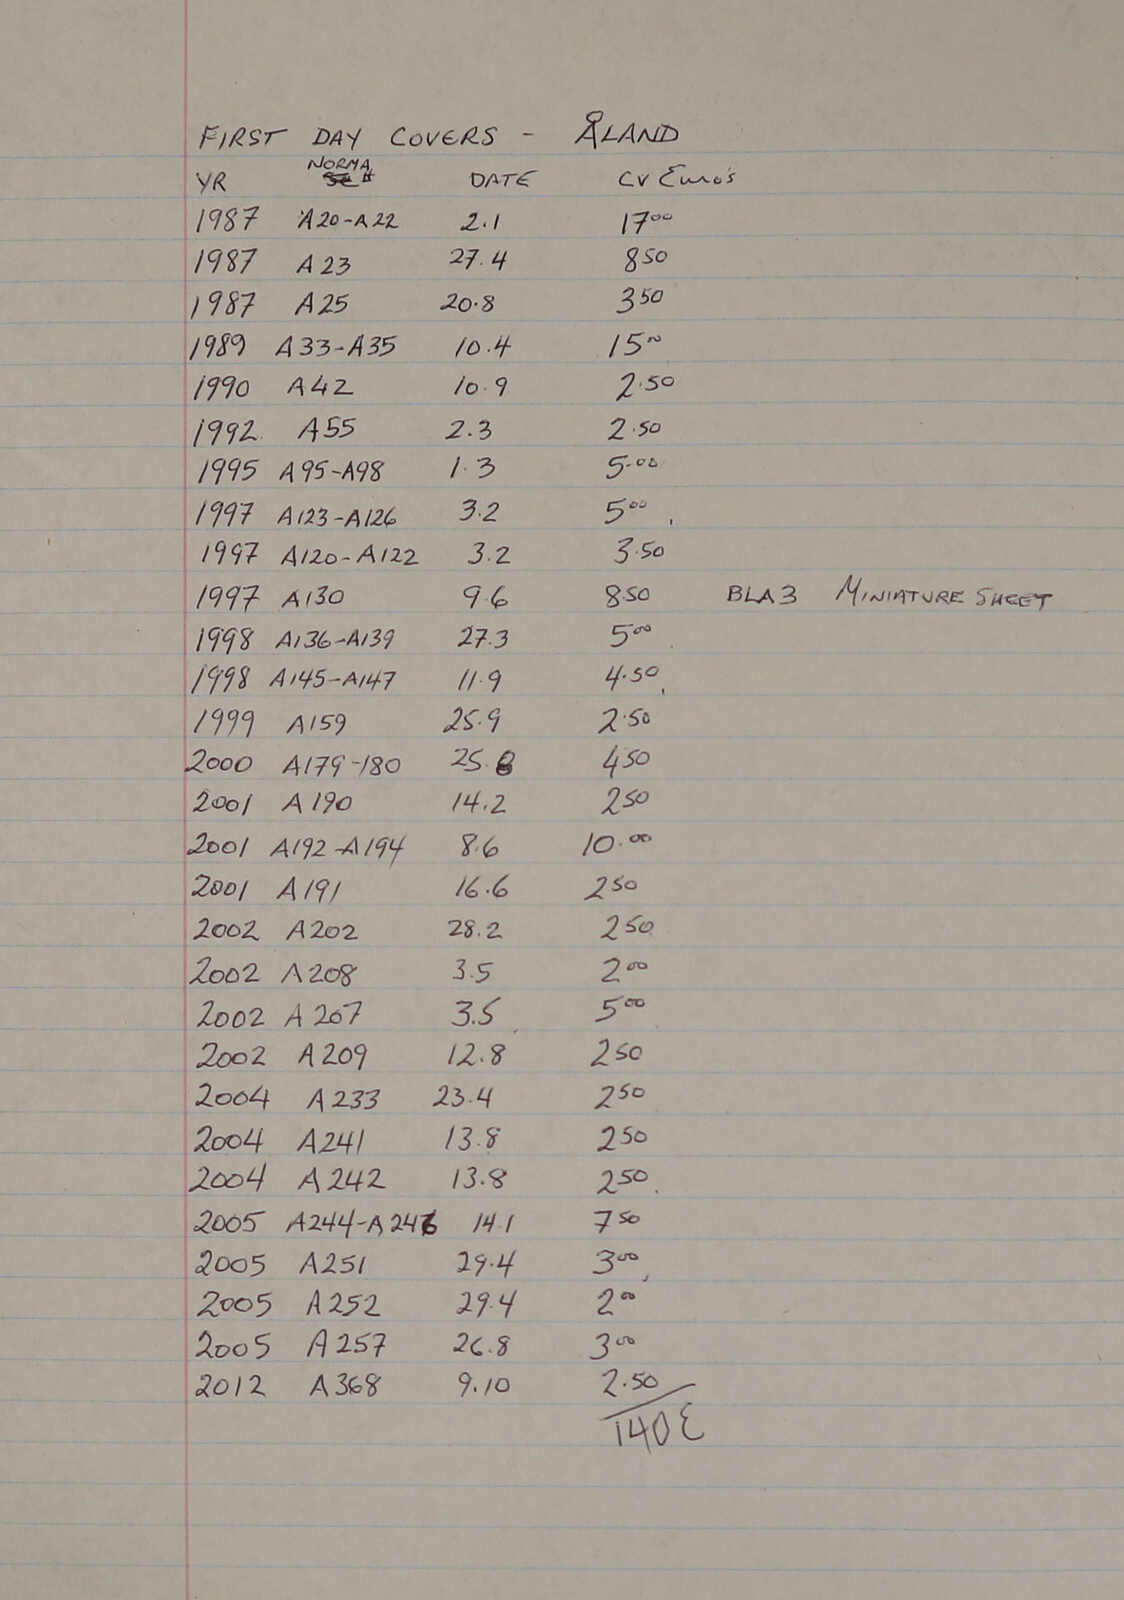 FIRST DAY COVERS - ÅLAND
YR NORMA # DATE CV Euro's
1987 A20-A22 2.1 17⁰⁰
1987 A23 27.4 8⁵⁰
1987 A25 20.8 3⁵⁰
1989 A33-A35 10.4 15⁰⁰
1990 A42 10.9 2.50
1992 A55 2.3 2.50
1995 A95-A98 1.3 5.00
1997 A123-A126 3.2 5⁰⁰
1997 A120-A122 3.2 3.50
1997 A130 9.6 8.50 BLA3 MINIATURE SHEET
1998 A136-A139 27.3 5⁰⁰
1998 A145-A147 11.9 4.50
1999 A159 25.9 2.50
2000 A179-180 25.8 4⁵⁰
2001 A190 14.2 2⁵⁰
2001 A192-A194 8.6 10.⁰⁰
2001 A191 16.6 2⁵⁰
2002 A202 28.2 2⁵⁰
2002 A208 3.5 2⁰⁰
2002 A207 3.5 5⁰⁰
2002 A209 12.8 2⁵⁰
2004 A233 23.4 2⁵⁰
2004 A241 13.8 2⁵⁰
2004 A242 13.8 2⁵⁰
2005 A244-A246 14.1 7⁵⁰
2005 A251 29.4 3⁰⁰
2005 A252 29.4 2⁰⁰
2005 A257 26.8 3⁰⁰
2012 A368 9.10 2.50
140 €